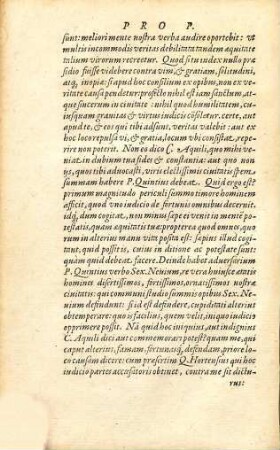 PRO P.
sunt: meliori mente nostra verba audire oportebit: vt
multis incommodis veritas debilitata tandem aquitate
talium virorum recreetur. Quod si tu iudex nullo præ
sidio fuisse videbere contra vim, & gratiam, solitudini,
atq; inopiæ: si apud hoc consilium ex opibus, non ex ve
ritate causa pendetur: profecto nihil est iam sanctum, at-
que sincerum in ciuitate: nihil quod humilitatem, cu-
iusquam grauitas & virtus iudicis cõsoletur. certe, aut
apud te, & eos qui tibi assunt, veritas valebit: aut ex
hoc loco repulsa vi, & gratia, locum vbi consistat, repe-
rire non poterit. Non eo dico C. Aquili, quo mihi ve-
niat in dubium tua fides & constantia: aut quo non in
his, quos tibi aduocasti, viris electissimis ciuitatis spem
summam habere P. Quintius debeat. Quid ergo est?
primum magnitudo periculi summo timore hominem
afficit, quod vno iudicio de fortunis omnibus decernit.
idq; dum cogitat, non minus sæpe ei venit in mentẽ po
testatis, quam æquitatis tuæ: propterea quod omnes, quo
rum in alterius manu vita posita est: sæpius illud cogi-
tant, quid possit is, cuius in ditione ac potestate sunt:
quàm quid debeat facere. Deinde habet aduersarium
P. Quintius verbo Sex. Neuium, re vera huiusce ætatis
homines disertissimos, fortissimos, ornatissimos nostræ
ciuitatis: qui communi studio summis opibus Sex. Ne-
uium defendunt: si id est defendere, cupiditati alterius
obtemperare: quo is facilius, quem velit, iniquo iudicio
opprimere possit. Nã quid hoc iniquius, aut indignius
C. Aquili dici aut commemorari potest? quam me, qui
caput alterius, famam, fortunasq; defendam, priore lo-
co causam dicere: cum præsertim Q. Hortensius qui hoc
iudicio partes accusatoris obtinet, contra me sit dictu-
rus: